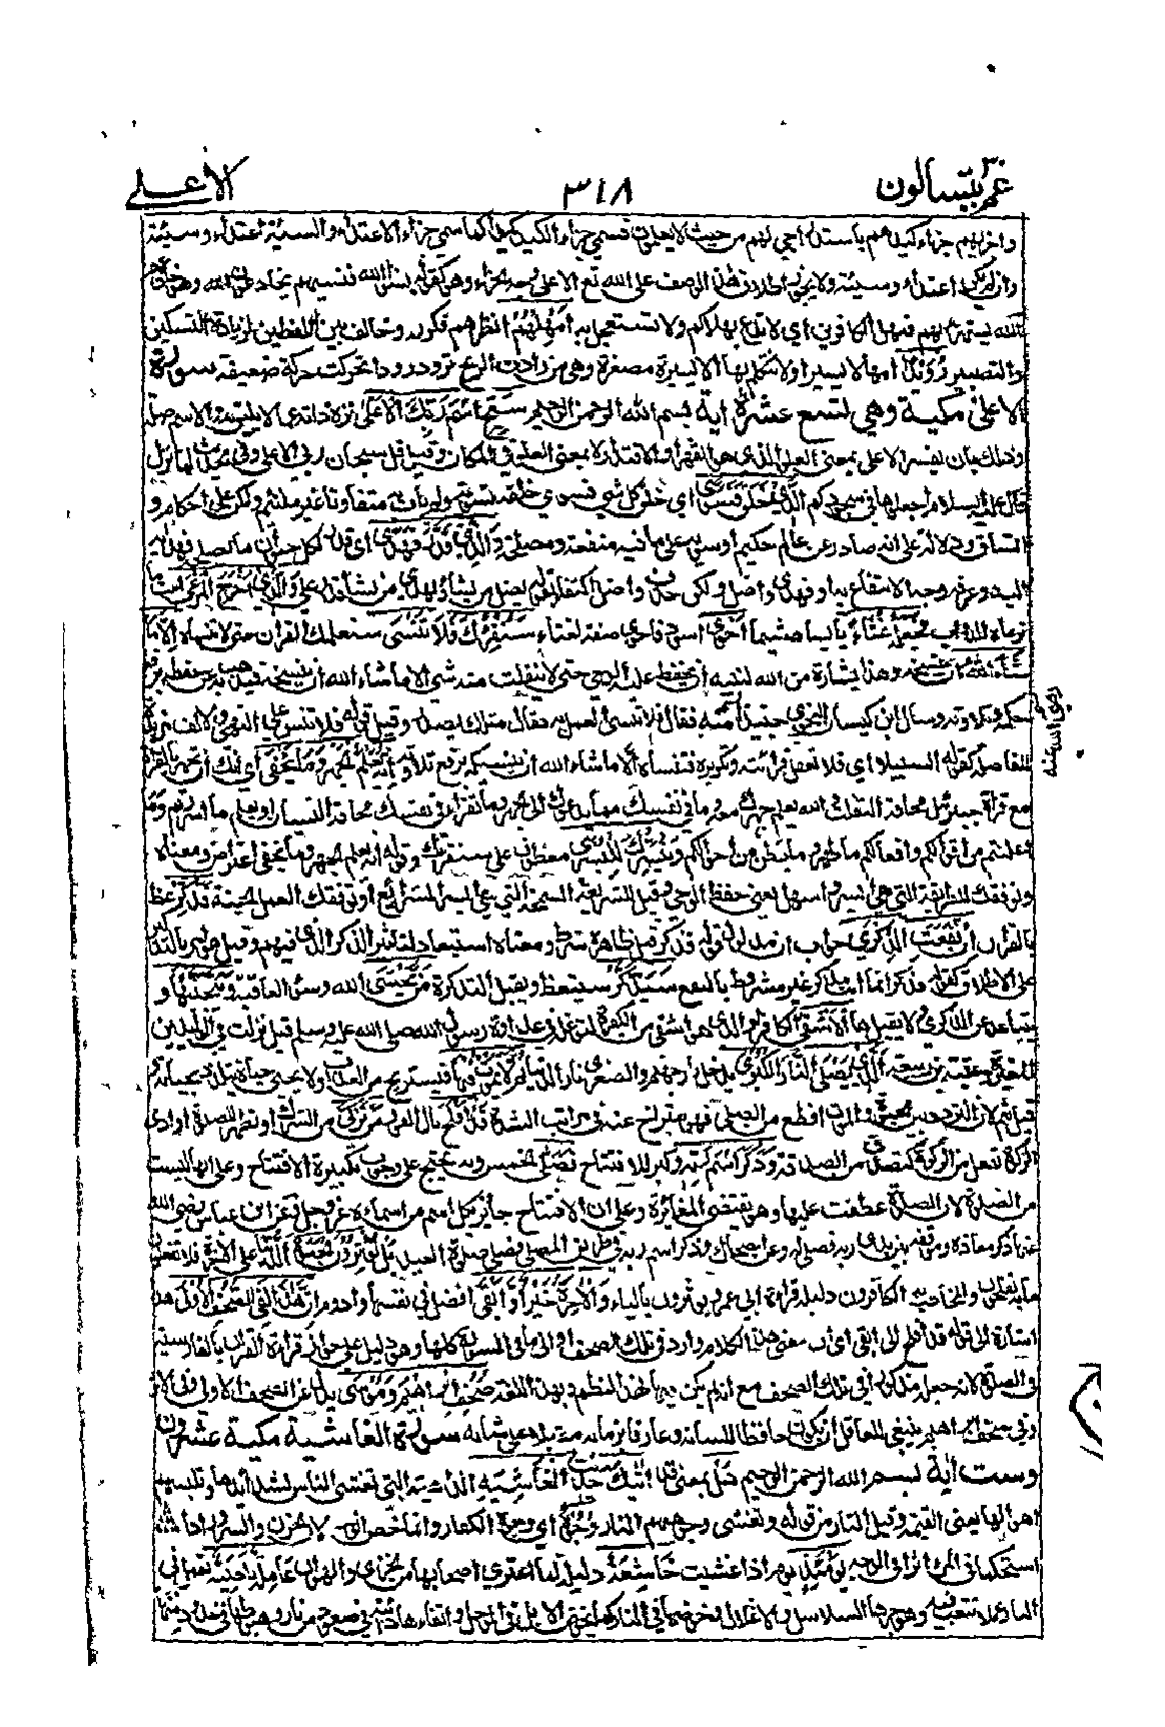 عم يتسالون ٣١٨ الاعلى
واجزيهم جزاء كيدهم باستدراجي لهم من حيث لا يعلمون فسمي جزاء الكيد كيدا كما سمي جزاء الاعتداء والسيئة اعتداء وسيئة
وان لم يكن اعتداء وسيئة ولا يجوز اطلاق هذا الوصف على الله تع الا على وجه الجزاء وهو كقوله نسوا الله فنسيهم يخادعون الله وهو خادعهم
الله يستهزئ بهم فمهل الكافرين اي لا تدع بهلاكهم ولا تستعجل به امهلهم انظرهم فكرر وخالف بين اللفظين لزيادة التسكين
والتصبير رويدا امهالا يسيرا ولا يتكلم بها الا مصغرة وهي من رادت الريح ترود رودا تحركت حركة ضعيفة سورة
الاعلى مكية وهي تسع عشرة اية بسم الله الرحمن الرحيم سبح اسم ربك الاعلى نزه ذاته عما لا يليق به والاسم صلة
وذلك بان يفسر الاعلى بمعنى العلو الذي هو القهر والاقتدار لا بمعنى العلو في المكان وقيل قل سبحان ربي الاعلى وفي الحديث لما نزل
قال عليه السلام اجعلوها في سجودكم الذي خلق فسوى اي خلق كل شي فسوى خلقه تسوية ولم يأت به متفاوتا غير ملتئم ولكن على احكام و
اتساق ودلالة على انه صادر عن عالم حكيم او سواه على ما فيه منفعة ومصلحة والذي قدر فهدى اي قدر لكل حيوان ما يصلحه فهداه
اليه وعرفه وجه الانتفاع به او فهدى واضل ولكن حذف واضل اكتفاء كقوله يضل من يشاء ويهدي من يشاء والذي اخرج المرعى انبت ما
ترعاه الدواب فجعله غثاء يابسا هشيما احوى اسود فاحوى صفة لغثاء سنقرئك فلا تنسى سنعلمك القرآن حتى لا تنساه الا ما
شاء الله ان ينسخه وهذا بشارة من الله لنبيه ان يحفظ عليه الوحي حتى لا ينفلت منه شي الا ما شاء الله ان ينسخه فيذهب به عن حفظه برفع
حكمه وتلاوته وسال ابن كيسان النحوي جنيدا عنه فقال فلا تنسى العمل به فقال مثلك يصدر وقيل قوله فلا تنسى على النهي والالف مزيدة
للفاصلة كقوله السبيلا اي فلا تغفل قرائته وتكريره فتنساه الا ما شاء الله ان ينسيكه برفع تلاوته انه يعلم الجهر وما يخفى اي انك تجهر بالقراءة
مع قراءة جبرئيل مخافة التفلت والله يعلم جهرك معه وما في نفسك مما يدعوك الى الجهر او ما تقرا في نفسك مخافة النسيان او يعلم ما اسررتم وما
اعلنتم من اقوالكم وافعالكم وما ظهر وما بطن من احوالكم ونيسرك لليسرى معطوف على سنقرئك وقوله انه يعلم الجهر وما يخفى اعتراض ومعناه
ونوفقك للطريقة التي هي ايسر واسهل يعني حفظ الوحي وقيل للشريعة السمحة التي هي ايسر الشرائع او نوفقك لعمل الجنة فذكر عظ
بالقران ان نفعت الذكرى جواب ان مدلول قوله فذكر قيل ظاهره شرط ومعناه استبعاد لتاثير الذكرى فيهم وقيل هو امر بالتذكير
على الاطلاق كقوله فذكر انما انت مذكر غير مشروط بالنفع سيذكر سيتعظ ويقبل التذكرة من يخشى الله وسوء العاقبة ويتجنبها و
يتباعد عن الذكرى ولا يقبلها الاشقى الكافر او الذي هو اشقى الكفرة لتوغله في عداوة رسول الله صلى الله عليه وسلم قيل نزلت في الوليد بن
المغيرة وعتبة بن ربيعة الذي يصلى النار الكبرى يدخل نار جهنم والصغرى نار الدنيا ثم لا يموت فيها فيستريح من العذاب ولا يحيى حياة يتلذذ بها
قيل ثم لان الترجح بين الحيوة والموت افظع من الصلي فهو متراخ عنه في مراتب الشدة قد افلح نال الفوز من تزكى من الشرك او تطهر للصلوة او ادى
الزكوة تفعل من الزكوة كتصدق من الصدقة وذكر اسم ربه وكبر للافتتاح فصلى الخمس وبه يحتج على وجوب تكبيرة الافتتاح وعلى انها ليست
من الصلوة لان الصلوة عطفت عليها وهو يقتضي المغايرة وعلى ان الافتتاح جائز بكل اسم من اسماءه عز وجل وعن ابن عباس رضي الله
عنهما ذكر معاده وموقفه بين يدي ربه فصلى له وعن الضحاك وذكر اسم ربه في طريق المصلى فصلى صلوة العيد بل تؤثرون الحيوة الدنيا على الاخرة فلا تفعلون
ما به تفلحون والمخاطب به الكافرون دليله قراءة ابي عمرو يؤثرون بالياء والاخرة خير وابقى افضل في نفسها وادوم ان هذا لفي الصحف الاولى هذا
اشارة الى قوله قد افلح الى ابقى اي ان معنى هذا الكلام وارد في تلك الصحف او الى ما في السورة كلها وهو دليل على جواز قراءة القران بالفارسية
في الصلوة لانه جعله مذكورا في تلك الصحف مع انه لم يكن فيها بهذا النظم وبهذه اللغة صحف ابراهيم وموسى بدل من الصحف الاولى وفي الاثر
وفي صحف ابراهيم ينبغي للعاقل ان يكون حافظا للسانه وعارفا بزمانه مقبلا على شانه سورة الغاشية مكية عشرون
وست اية بسم الله الرحمن الرحيم هل بمعنى قد اتيك حديث الغاشية الداهية التي تغشى الناس بشدائدها وتلبسهم
اهوالها يعني القيمة وقيل النار من قوله وتغشى وجوههم النار وجوه اي وجوه الكفار وانما خص الوجه لان الحزن والسرور اذا
استحكما في المرء اثرا في الوجه يومئذ يوم اذ غشيت خاشعة ذليلة لما اعترى اصحابها من الخزي والهوان عاملة ناصبة تعمل في
النار عملا تتعب فيه وهو جرها السلاسل والاغلال وخوضها في النار كما تخوض الابل في الوحل وارتقاءها دائبة في صعود من نار وهبوطها في حدور منها
رضي الله عنه